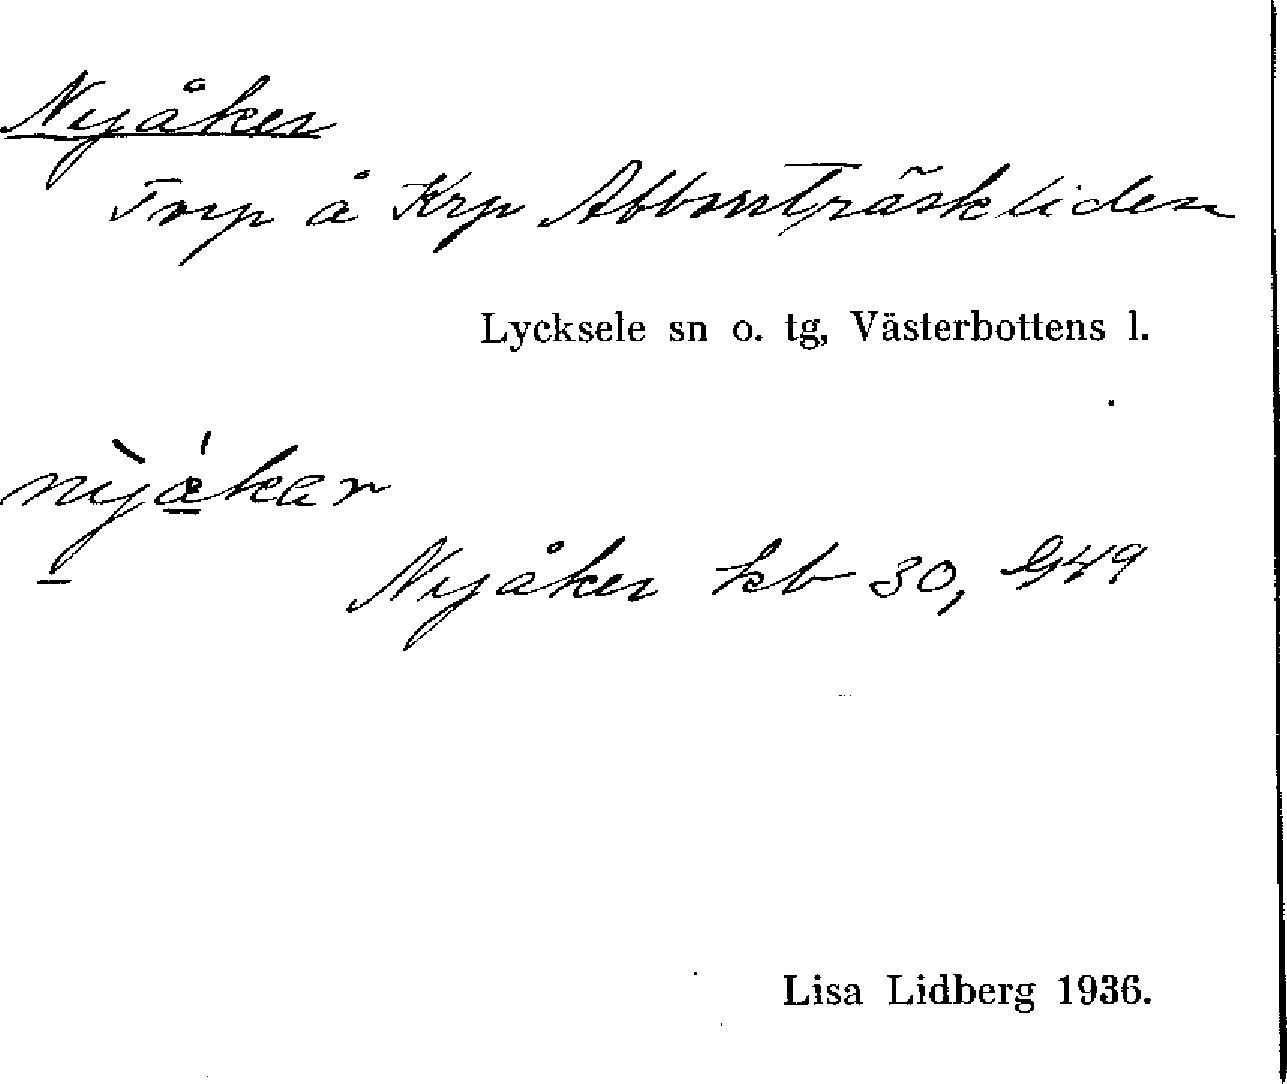 Nyåker
Trp å Krp Abborrträskliden
Lycksele sn o. tg, Västerbottens l.
Nyåker kb 30, G49
Lisa Lidberg 1936.